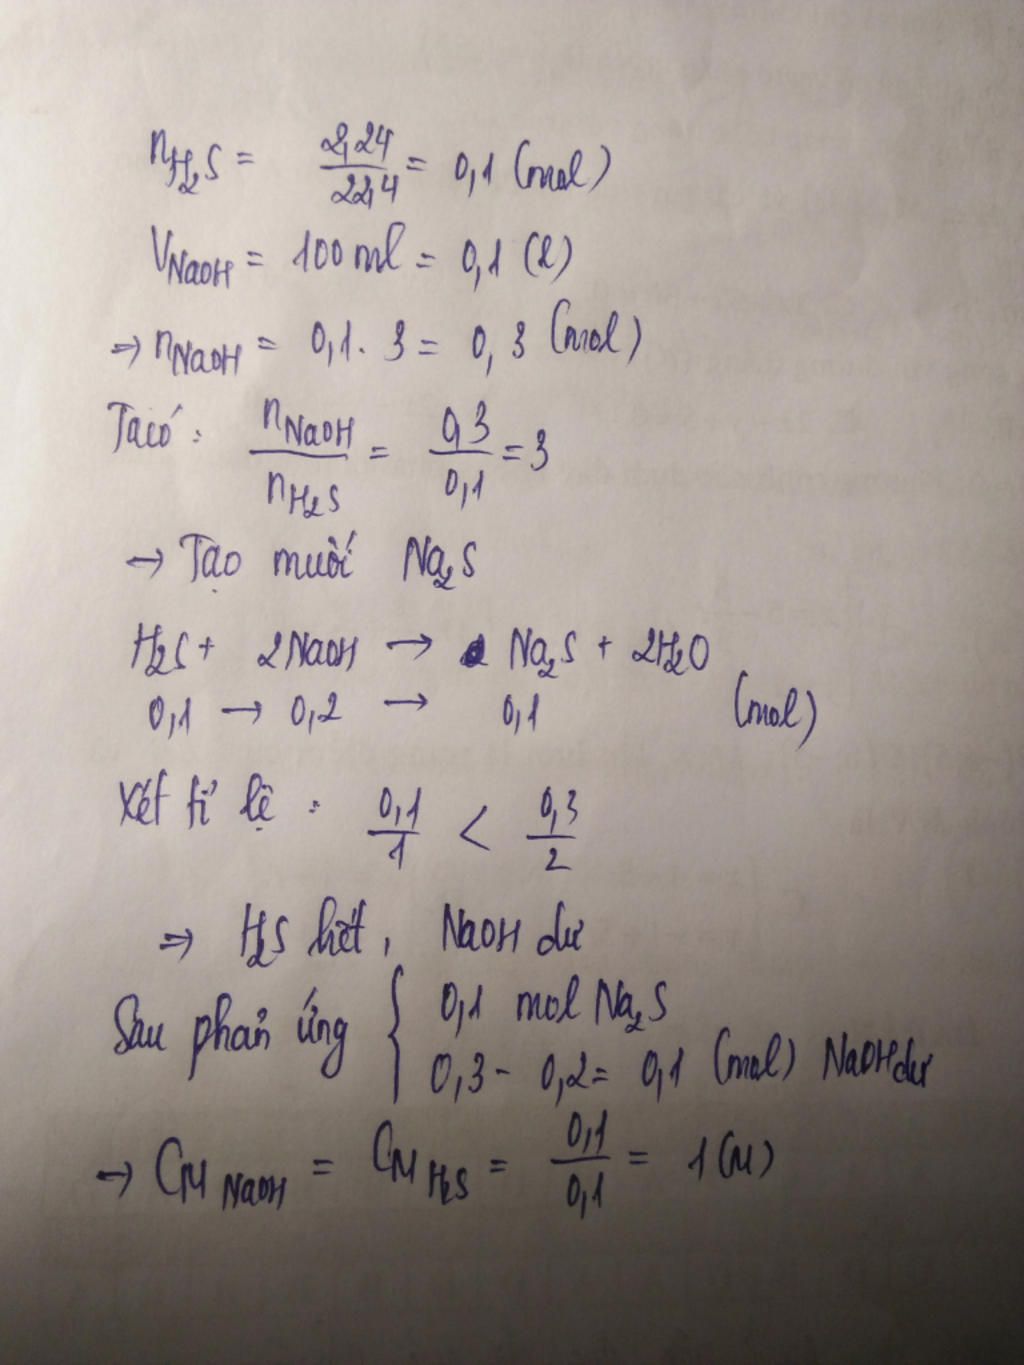 nH₂S = 2,24/22,4 = 0,1 (mol)
VNaOH = 100 ml = 0,1 (l)
⇒ nNaOH = 0,1 . 3 = 0,3 (mol)
Ta có : nNaOH/nH₂S = 0,3/0,1 = 3
→ Tạo muối Na₂S
H₂S + 2NaOH → Na₂S + 2H₂O
0,1 → 0,2 → 0,1 (mol)
Xét tỉ lệ : 0,1/1 < 0,3/2
⇒ H₂S hết, NaOH dư
Sau phản ứng { 0,1 mol Na₂S
0,3 - 0,2 = 0,1 (mol) NaOH dư
→ CM NaOH = CM H₂S = 0,1/0,1 = 1 (M)